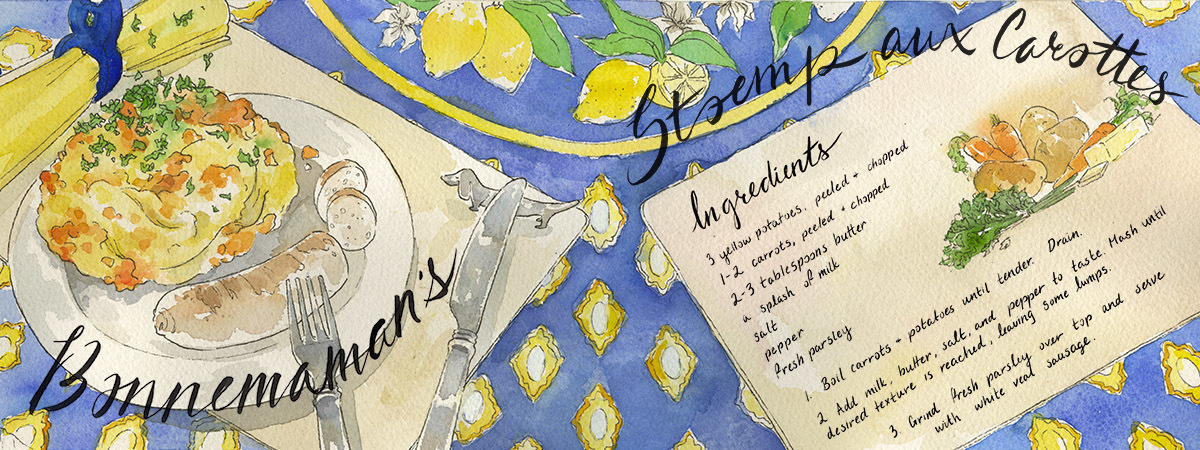 Bonnemaman's
Stoemp aux Carottes
Ingredients
3 yellow potatoes, peeled + chopped
1-2 carrots, peeled + chopped
2-3 tablespoons butter
a splash of milk
salt
pepper
fresh parsley
1. Boil carrots + potatoes until tender. Drain.
2. Add milk, butter, salt, and pepper to taste. Mash until
desired texture is reached, leaving some lumps.
3. Grind fresh parsley over top and serve
with white veal sausage.